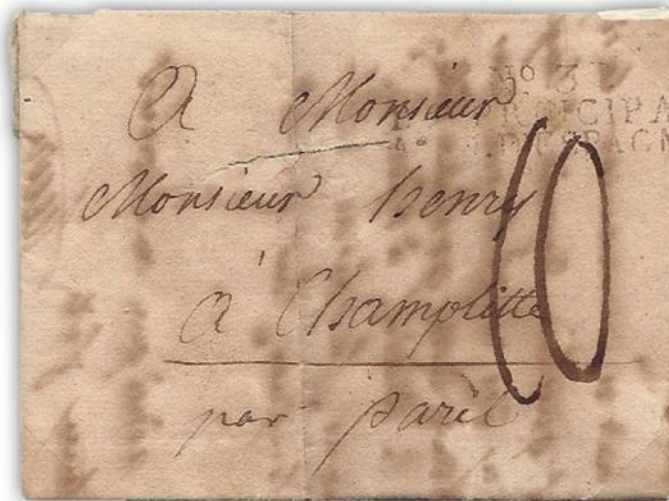 A Monsieur
Nº 3
Monsieur henry
à Champlitte
par paris
10